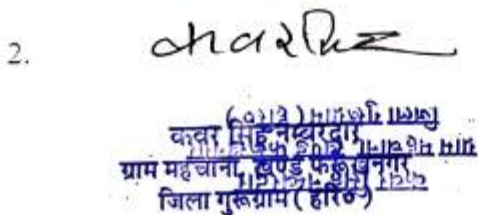 2. कंवर सिंह
कंवर सिंह नम्बरदार
ग्राम महचाना, खण्ड फरूखनगर
जिला गुरूग्राम (हरि०)